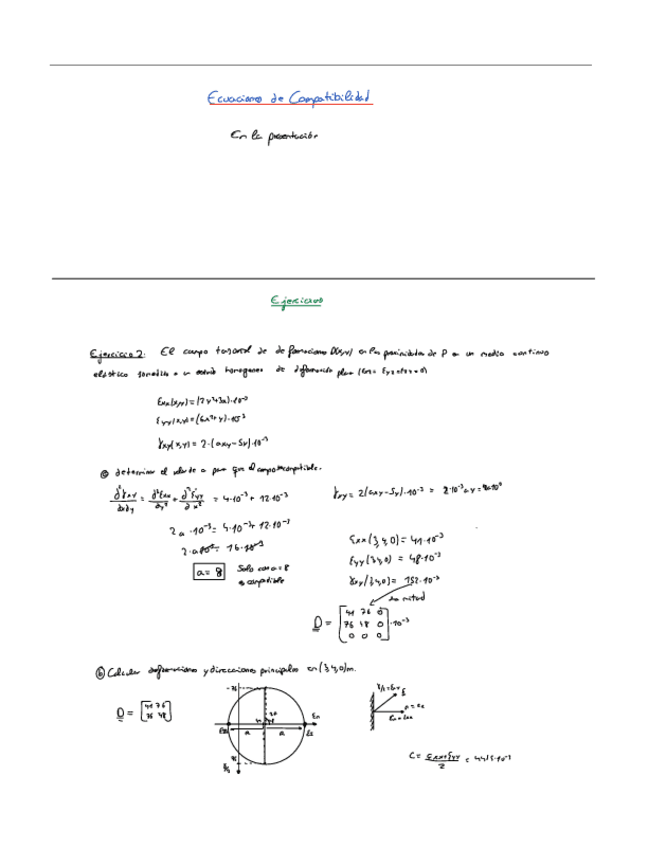 Ecuaciones de Compatibilidad
En la presentación
Ejercicios
Ejercicio 2: El campo tensorial de deformaciones D(x,y) en las proximidades de P en un medio continuo
elástico sometido a un estado homogéneo de deformación plana
Exx(x,y) = (2y²+3x)·10⁻³
Eyy(x,y) = (6x²+y)·10⁻³
γxy(x,y) = 2·(axy-5y)·10⁻³
ⓐ determinar el valor de a para que el campo sea compatible.
∂²γxy/∂x∂y = ∂²Exx/∂y² + ∂²Eyy/∂x² = 4·10⁻³ + 12·10⁻³
γxy = 2(axy-5y)·10⁻³
2a·10⁻³ = 4·10⁻³ + 12·10⁻³
2·a·10⁻³ = 16·10⁻³
a = 8
Solo con a = 8
es compatible
Exx(3,4,0) = 41·10⁻³
Eyy(3,4,0) = 48·10⁻³
γxy(3,4,0) = 152·10⁻³
la mitad
D = [41 76 0
76 48 0
0 0 0]·10⁻³
ⓑ Calcular deformaciones y direcciones principales en (3,4,0)m.
D = [41 76
76 48]
-76
En
a a
C = Exx+Eyy/2 = 44,5·10⁻³